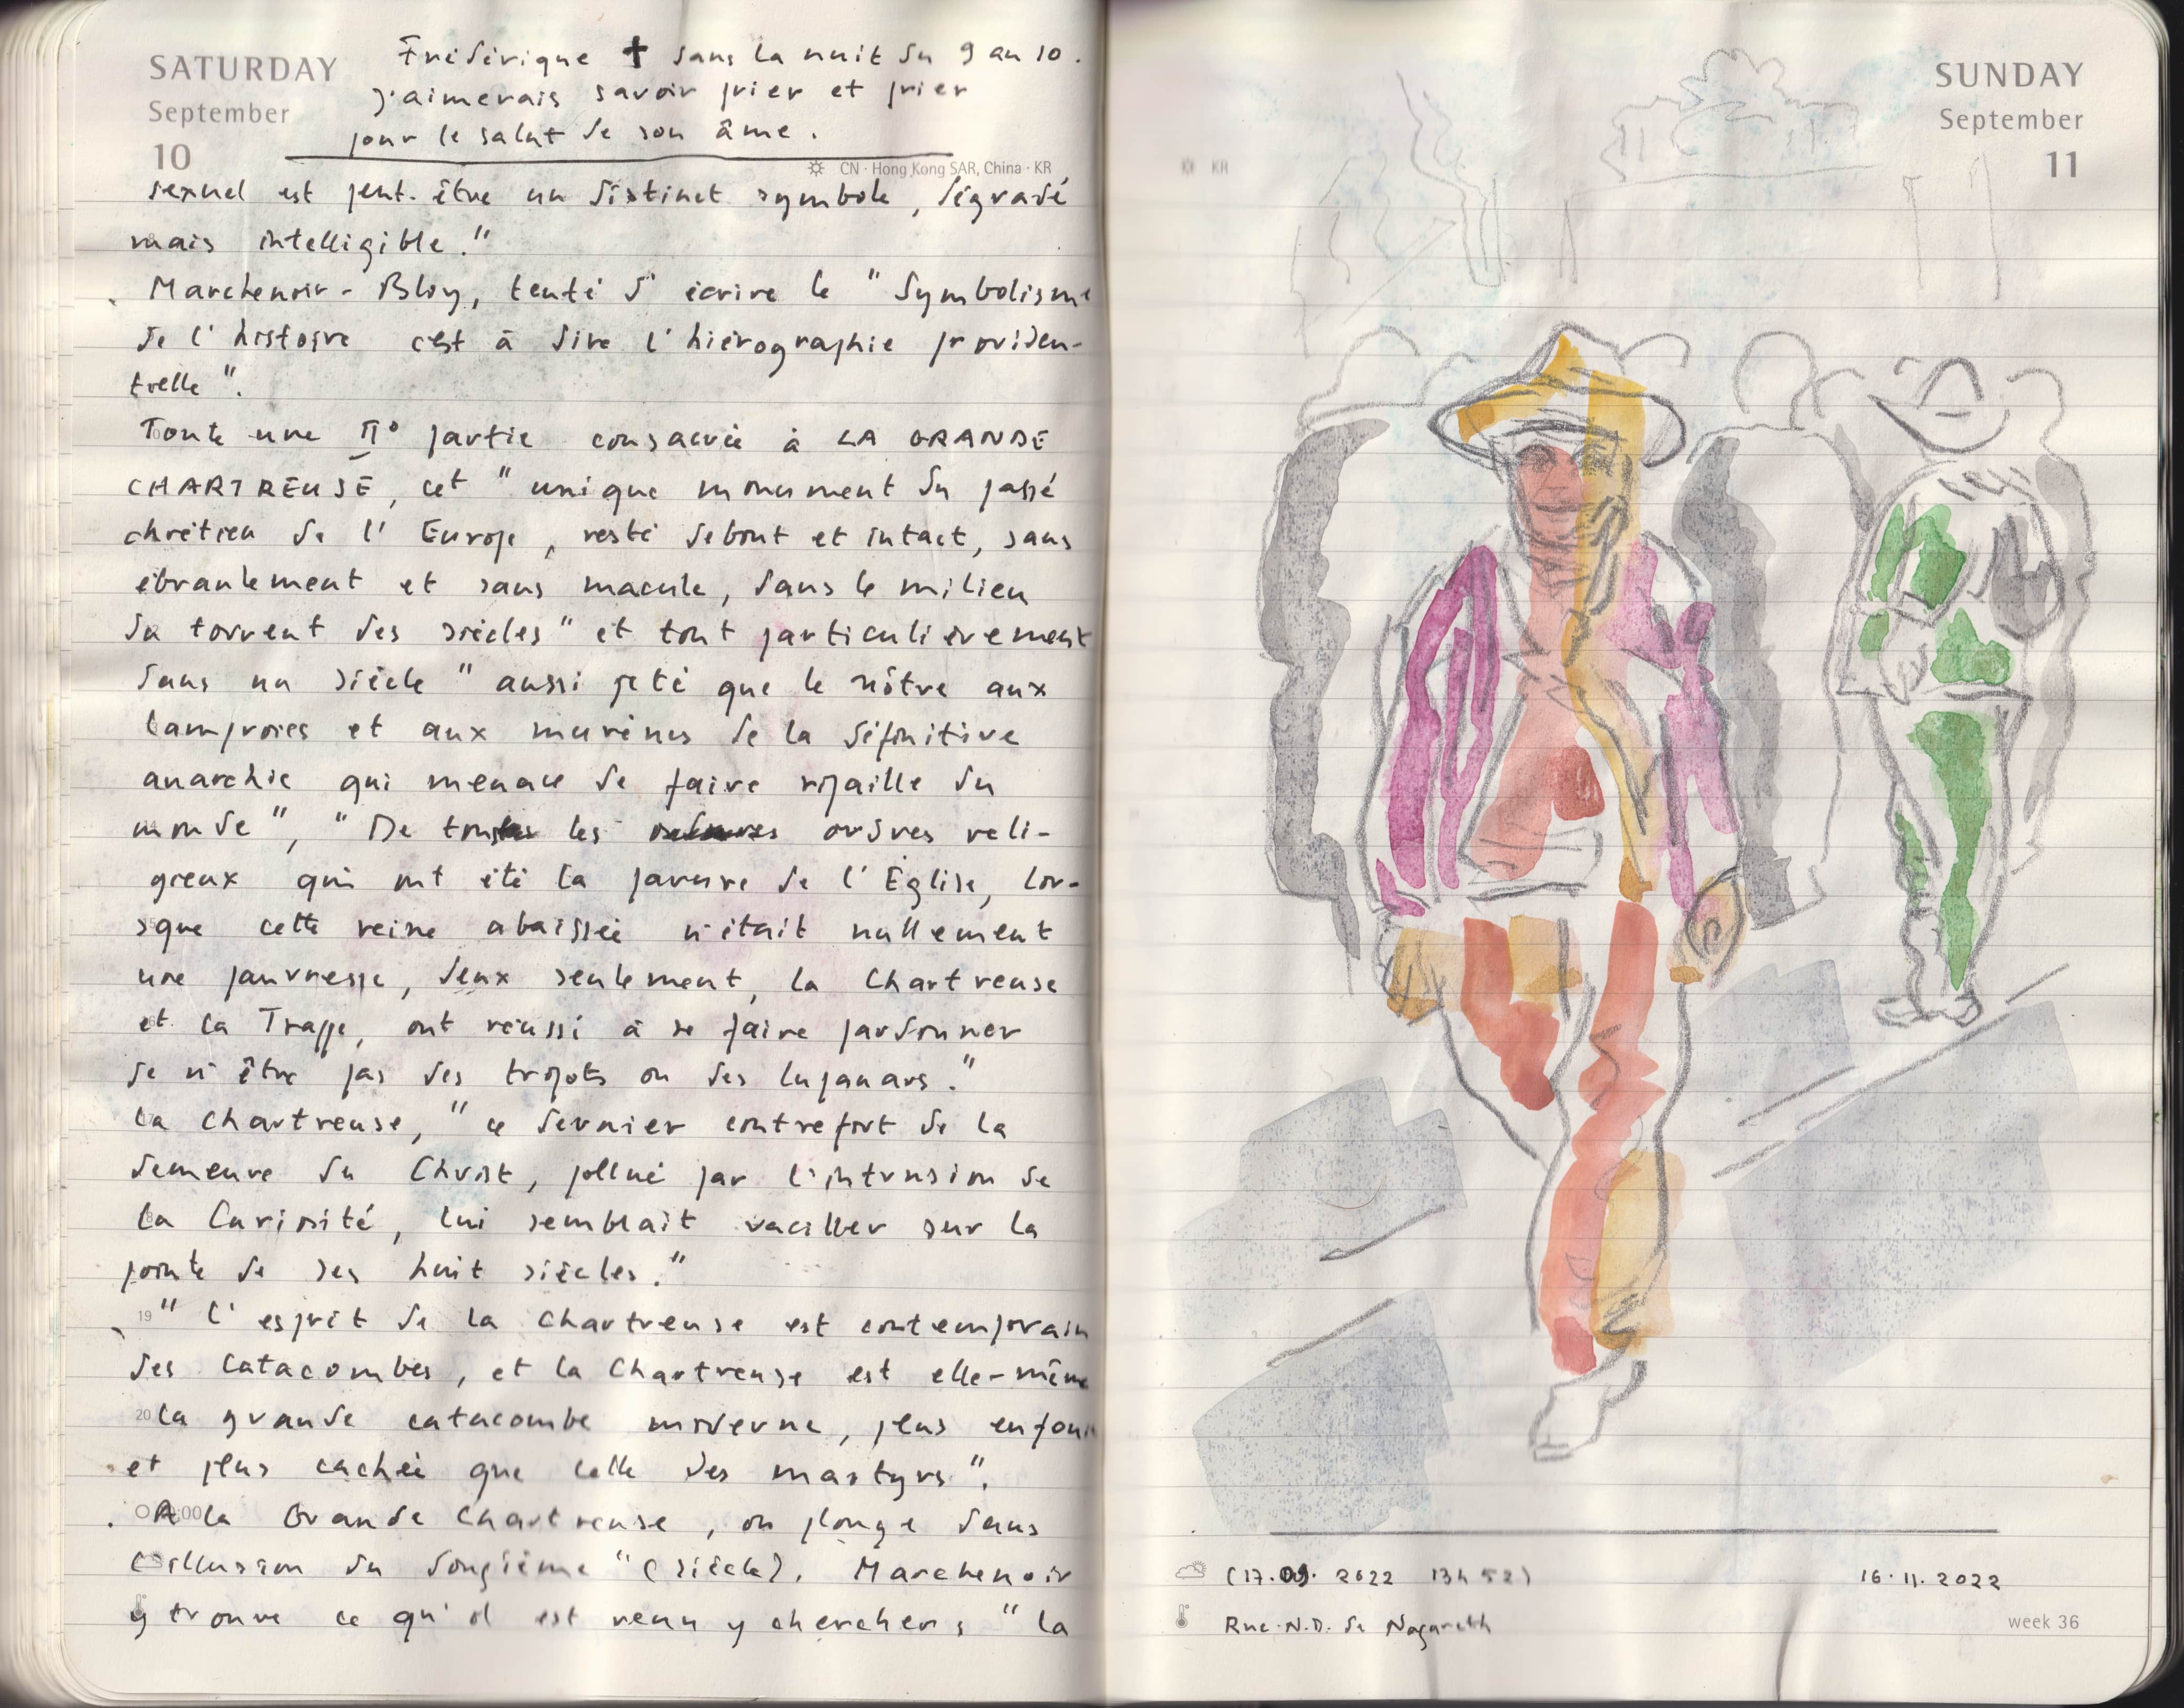 SATURDAY
September
10
Frédérique ✝ dans la nuit du 9 au 10.
J'aimerais savoir prier et prier
pour le salut de son âme.
CN · Hong Kong SAR, China · KR
sexuel est peut-être un distinct symbole, dégradé
mais intelligible."
Marchenoir-Bloy, tenté d'écrire le "Symbolisme
de l'histoire c'est à dire l'hiérographie providen-
tielle".
Toute une II° partie consacrée à LA GRANDE
CHARTREUSE, cet "unique monument du passé
chrétien de l'Europe, resté debout et intact, sans
ébranlement et sans macule, dans le milieu
du torrent des siècles" et tout particulièrement
dans un siècle "aussi jeté que le nôtre aux
lamproies et aux murènes de la définitive
anarchie qui menace de faire ripaille du
monde", "De tous les ordres reli-
gieux qui ont été la parure de l'Église, lor-
sque cette reine abaissée n'était nullement
une pauvresse, deux seulement, la Chartreuse
et la Trappe, ont réussi à se faire pardonner
de n'être pas des tripots ou des lupanars."
La Chartreuse, "ce dernier contrefort de la
demeure du Christ, pollué par l'intrusion de
la Curiosité, lui semblait vaciller sur la
pointe de ses huit siècles."
19 "L'esprit de la Chartreuse est contemporain
des Catacombes, et la Chartreuse est elle-même
20 la grande catacombe moderne, plus enfoui
et plus cachée que celle des martyrs".
A la Grande Chartreuse, on plonge dans
l'illusion du douzième "(siècle). Marchenoir
y trouve ce qu'il est venu y chercher: "la
SUNDAY
September
11
KR
(17.09.2022 13h52) 16.11.2022
Rue N.D. de Nazareth
week 36